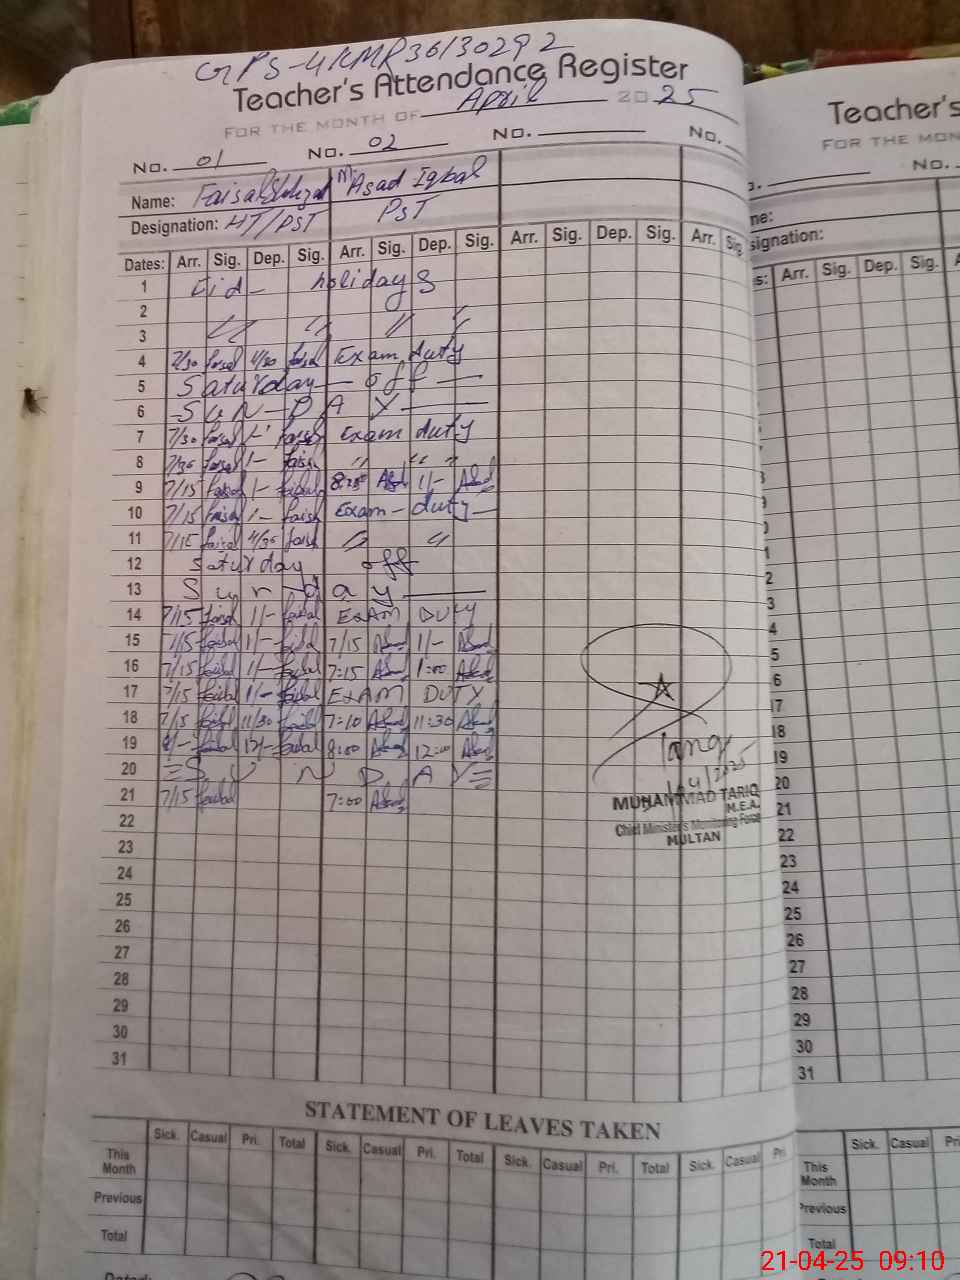 GPS-4KMR 36130292
Teacher's Attendance Register
FOR THE MONTH OF April 2025
No. 01 No. 02 No. No.
Name: Faisal Mr Asad Iqbal
Designation: HT/PST PST
Dates: Arr. Sig. Dep. Sig. Arr. Sig. Dep. Sig. Arr. Sig. Dep. Sig. Arr. Sig.
1 Eid- holidays
2
3 " " " "
4 7/30 faisal 11/30 faisal Exam duty
5 Saturday — off —
6 -SUN-DAY —
7 7/30 faisal 1-' faisal Exam duty
8 7/30 faisal 1- faisal " " "
9 7/15 faisal 1- faisal Asad 1/- Asad
10 7/15 faisal 1- faisal Exam - duty —
11 7/15 faisal 11/30 faisal " "
12 Saturday off
13 Sunday —
14 7/15 faisal 1/- faisal EXAM DUTY
15 7/15 faisal 1/- faisal 7/15 Asad 1/- Asad
16 7/15 faisal 1/- faisal 7:15 Asad 1:00 Asad
17 7/15 faisal 1/- faisal EXAM DUTY
18 7/15 faisal 11/30 faisal 7:10 Asad 11:30 Asad
19 8/- faisal 12/- faisal 8:00 Asad 12:00 Asad
20 =SUNDAY=
21 7/15 faisal 7:00 Asad
22
23
24
25
26
27
28
29
30
31
Tariq
4/2025
MUHAMMAD TARIQ
M.E.A.
Chief Minister's Monitoring Force
MULTAN
STATEMENT OF LEAVES TAKEN
Sick. Casual Pri. Total Sick. Casual Pri. Total Sick. Casual Pri. Total Sick. Casual Pri
This Month
Previous
Total
Teacher's
FOR THE MON
No.
me:
signation:
s: Arr. Sig. Dep. Sig. A
1
2
3
4
5
6
7
8
9
0
1
2
3
4
5
6
17
18
19
20
21
22
23
24
25
26
27
28
29
30
31
Sick. Casual Pri
This Month
Previous
Total
21-04-25 09:10